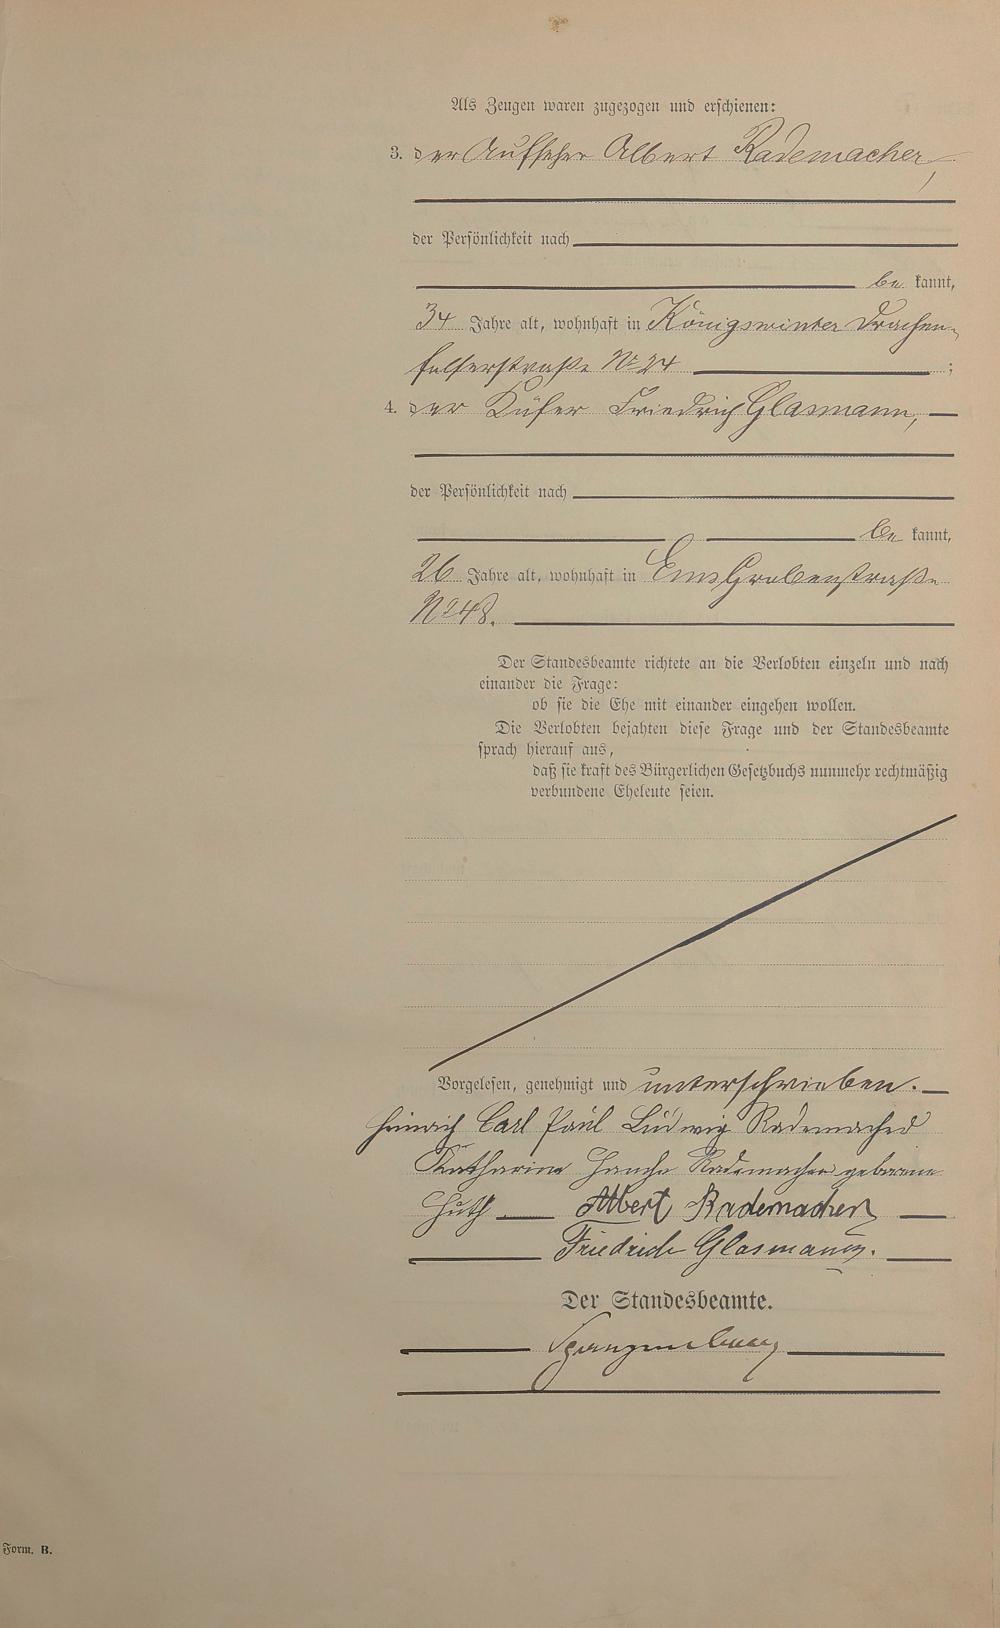 Als Zeugen waren zugezogen und erschienen:
3. der Aufseher Albert Rademacher,
der Persönlichkeit nach
be kannt,
34 Jahre alt, wohnhaft in Königswinter Drachen-
felserstraße No 24 ;
4. der Küfer Friedrich Glasmann,
der Persönlichkeit nach
be kannt,
26 Jahre alt, wohnhaft in Ems Grabenstraße
No 48.
Der Standesbeamte richtete an die Verlobten einzeln und nach
einander die Frage:
ob sie die Ehe mit einander eingehen wollen.
Die Verlobten bejahten diese Frage und der Standesbeamte
sprach hierauf aus,
daß sie kraft des Bürgerlichen Gesetzbuchs nunmehr rechtmäßig
verbundene Eheleute seien.
Vorgelesen, genehmigt und unterschrieben.
Heinrich Carl Paul Ludwig Rademacher
Katharine Rademacher geborene
Huth Albert Rademacher
Friedrich Glasmann.
Der Standesbeamte.
Form. B.